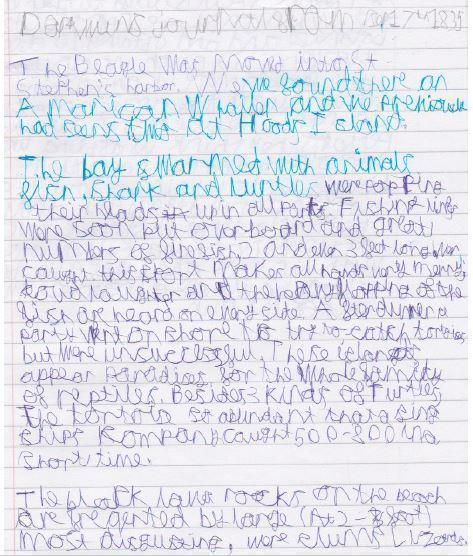 Darwins journal 5:00am Sep 17th 1835
The Beagle Was Movd into St
Stephens harbor. We found there an
American Whailer and we previously
had seen two at Hoods Island.
The bay swarmed with animals
fish, Shark and turtles were popping
their heads up in all parts. Fishing lines
were soon put overboard and great
numbers of fine fish 2 and even 3 feet long wer
caught. this sport makes all hands very merry
loud laughter and the heavy flapping of the
fish are heard on every side. A
party went on shore to try to catch tortoises
but were unsuccessful. These islands
appear paradises for the Whole family
of reptiles. Besides 3 kinds of Turtles
the tortois so abundant that a sing
ships Kompany caught 500-800 in a
short time.
The black lava rocks on the beach
are by large (2-3 feet)
Most disgusting, lizards